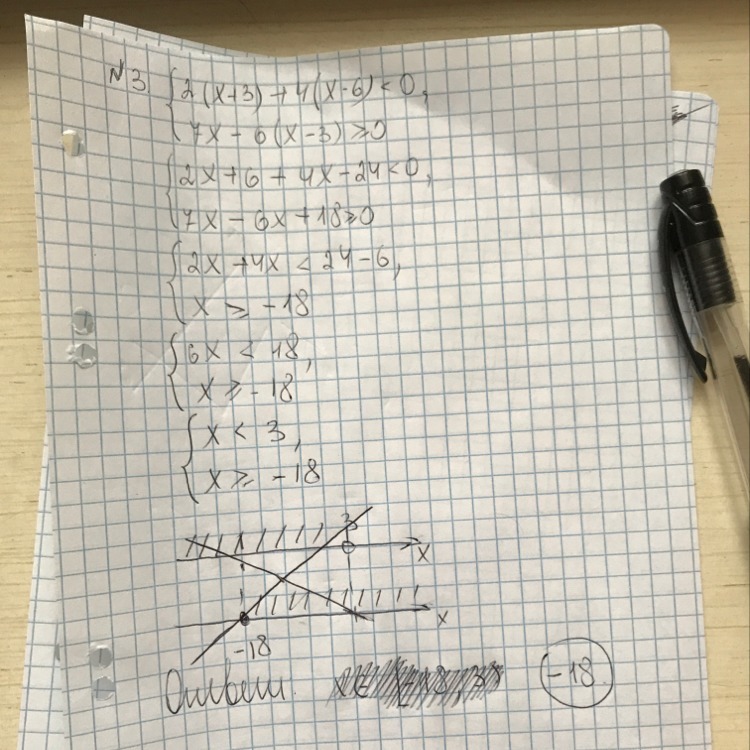 №3 { 2(x+3)+4(x-6)<0,
7x-6(x-3)⩾0
{ 2x+6+4x-24<0,
7x-6x+18⩾0
{ 2x+4x<24-6,
x ⩾ -18
{ 6x < 18,
x ⩾ -18
{ x < 3,
x ⩾ -18
3
x
x
-18
Ответ. -18